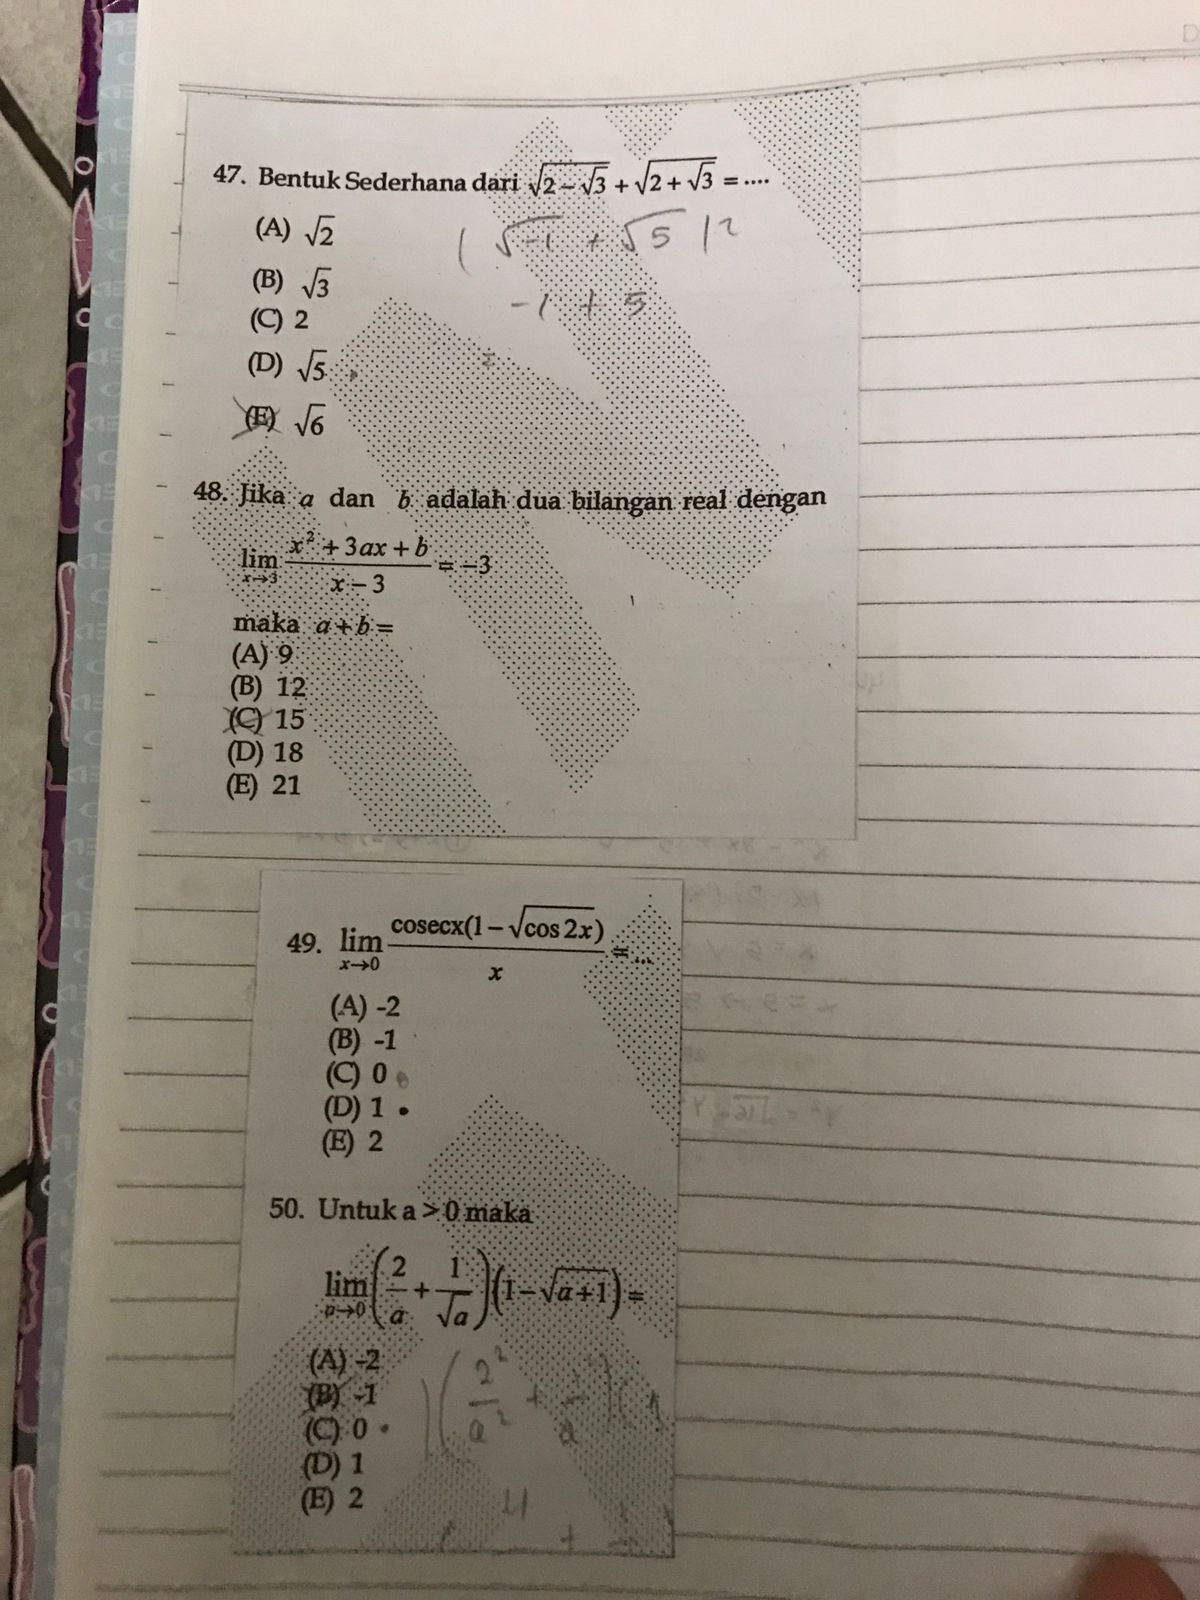 47. Bentuk Sederhana dari √(2 − √3) + √(2 + √3) = ....
(A) √2
(B) √3
(C) 2
(D) √5
(E) √6
( √-1 + √5 )2
-1 + 5
=
48. Jika a dan b adalah dua bilangan real dengan
lim x→3 (x² + 3ax + b)/(x − 3) = −3
maka a + b =
(A) 9
(B) 12
(C) 15
(D) 18
(E) 21
49. lim x→0 cosecx(1 − √cos 2x)/x = ...
(A) -2
(B) -1
(C) 0
(D) 1
(E) 2
50. Untuk a > 0 maka
lim a→0 (2/a + 1/√a)(1 − √(a+1)) =
(A) -2
(B) -1
(C) 0
(D) 1
(E) 2